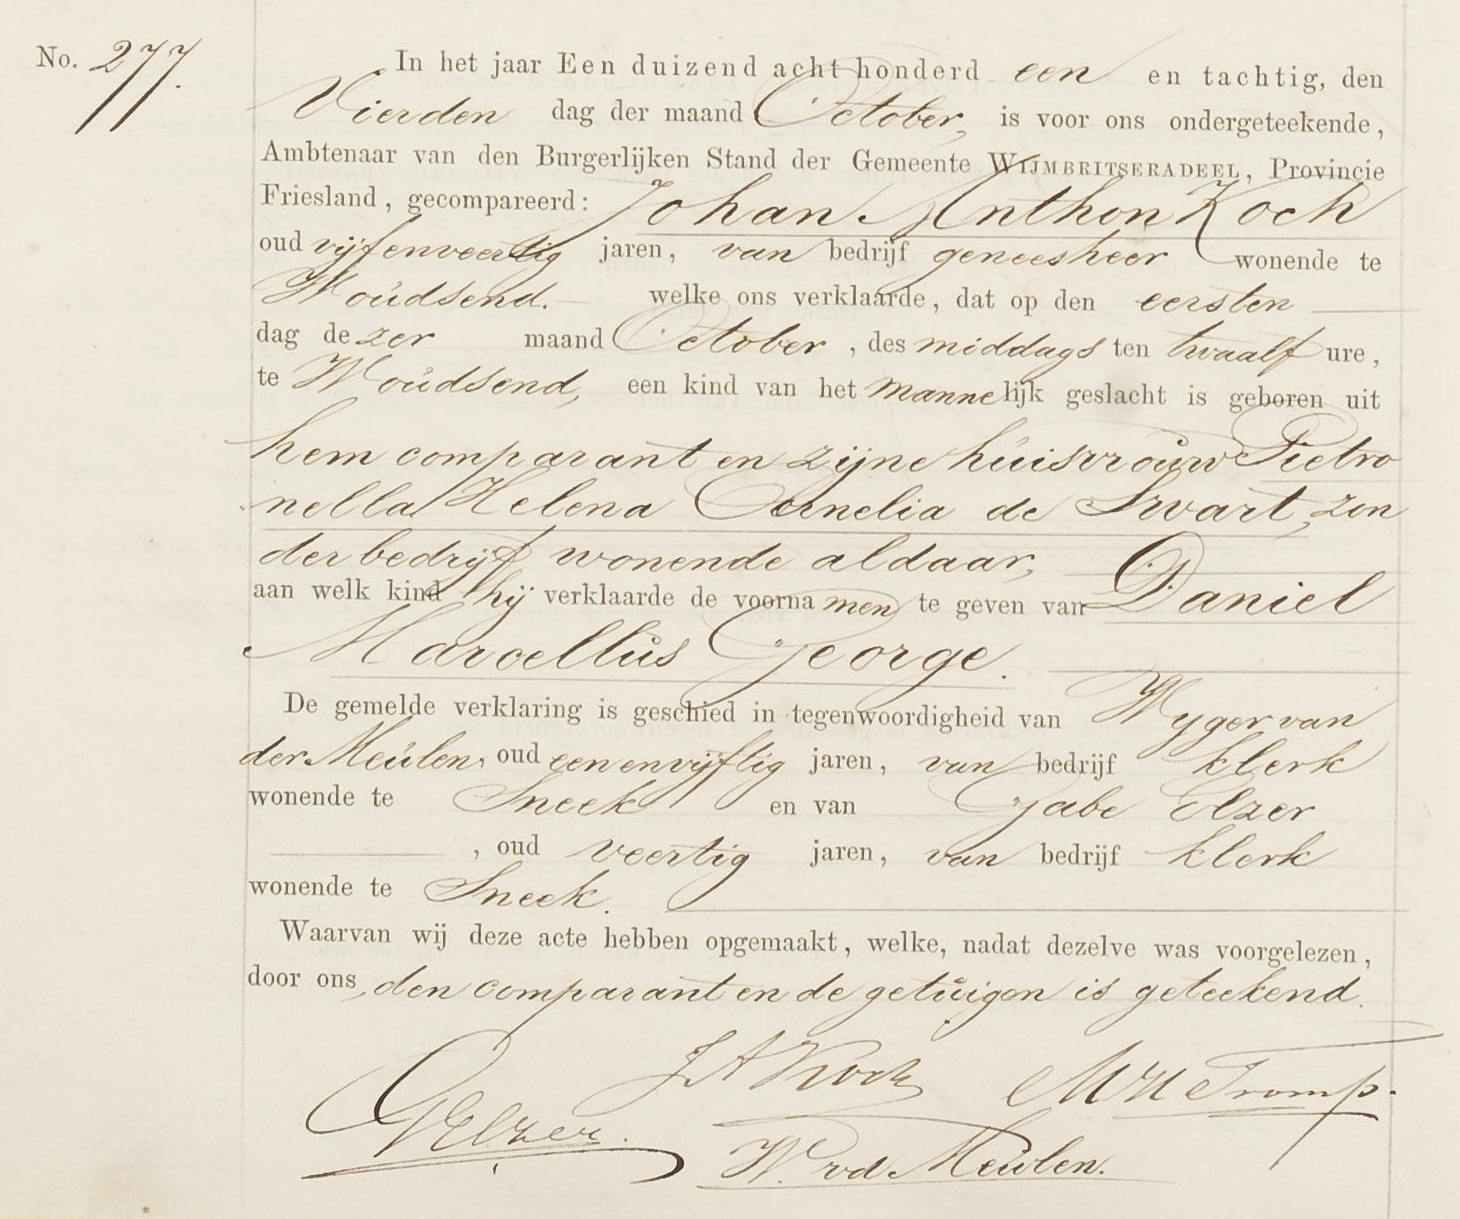 No. 277.
In het jaar Een duizend acht honderd een en tachtig, den
Vierden dag der maand October, is voor ons ondergeteekende,
Ambtenaar van den Burgerlijken Stand der Gemeente WIJMBRITSERADEEL, Provincie
Friesland, gecompareerd: Johan Anthon Koch
oud vijfenveertig jaren, van bedrijf geneesheer wonende te
Woudsend. welke ons verklaarde, dat op den eersten
dag dezer maand October, des middags ten twaalf ure,
te Woudsend, een kind van het mannelijk geslacht is geboren uit
hem comparant en zijne huisvrouw Pietro
nella Helena Cornelia de Swart, zon
der bedrijf wonende aldaar,
aan welk kind hij verklaarde de voornamen te geven van Daniel
Marcellus George.
De gemelde verklaring is geschied in tegenwoordigheid van Wyger van
der Meulen, oud eenenvijftig jaren, van bedrijf klerk
wonende te Sneek en van Gabe Elzer
, oud veertig jaren, van bedrijf klerk
wonende te Sneek.
Waarvan wij deze acte hebben opgemaakt, welke, nadat dezelve was voorgelezen,
door ons, den comparant en de getuigen is geteekend.
J A Koch M H Tromp.
G Elzer.
W. vd Meulen.